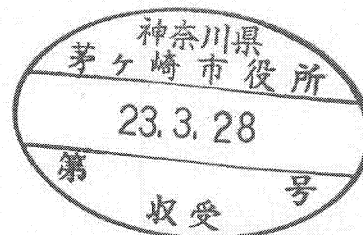 神奈川県
茅ヶ崎市役所
23.3.28
第 号
収受